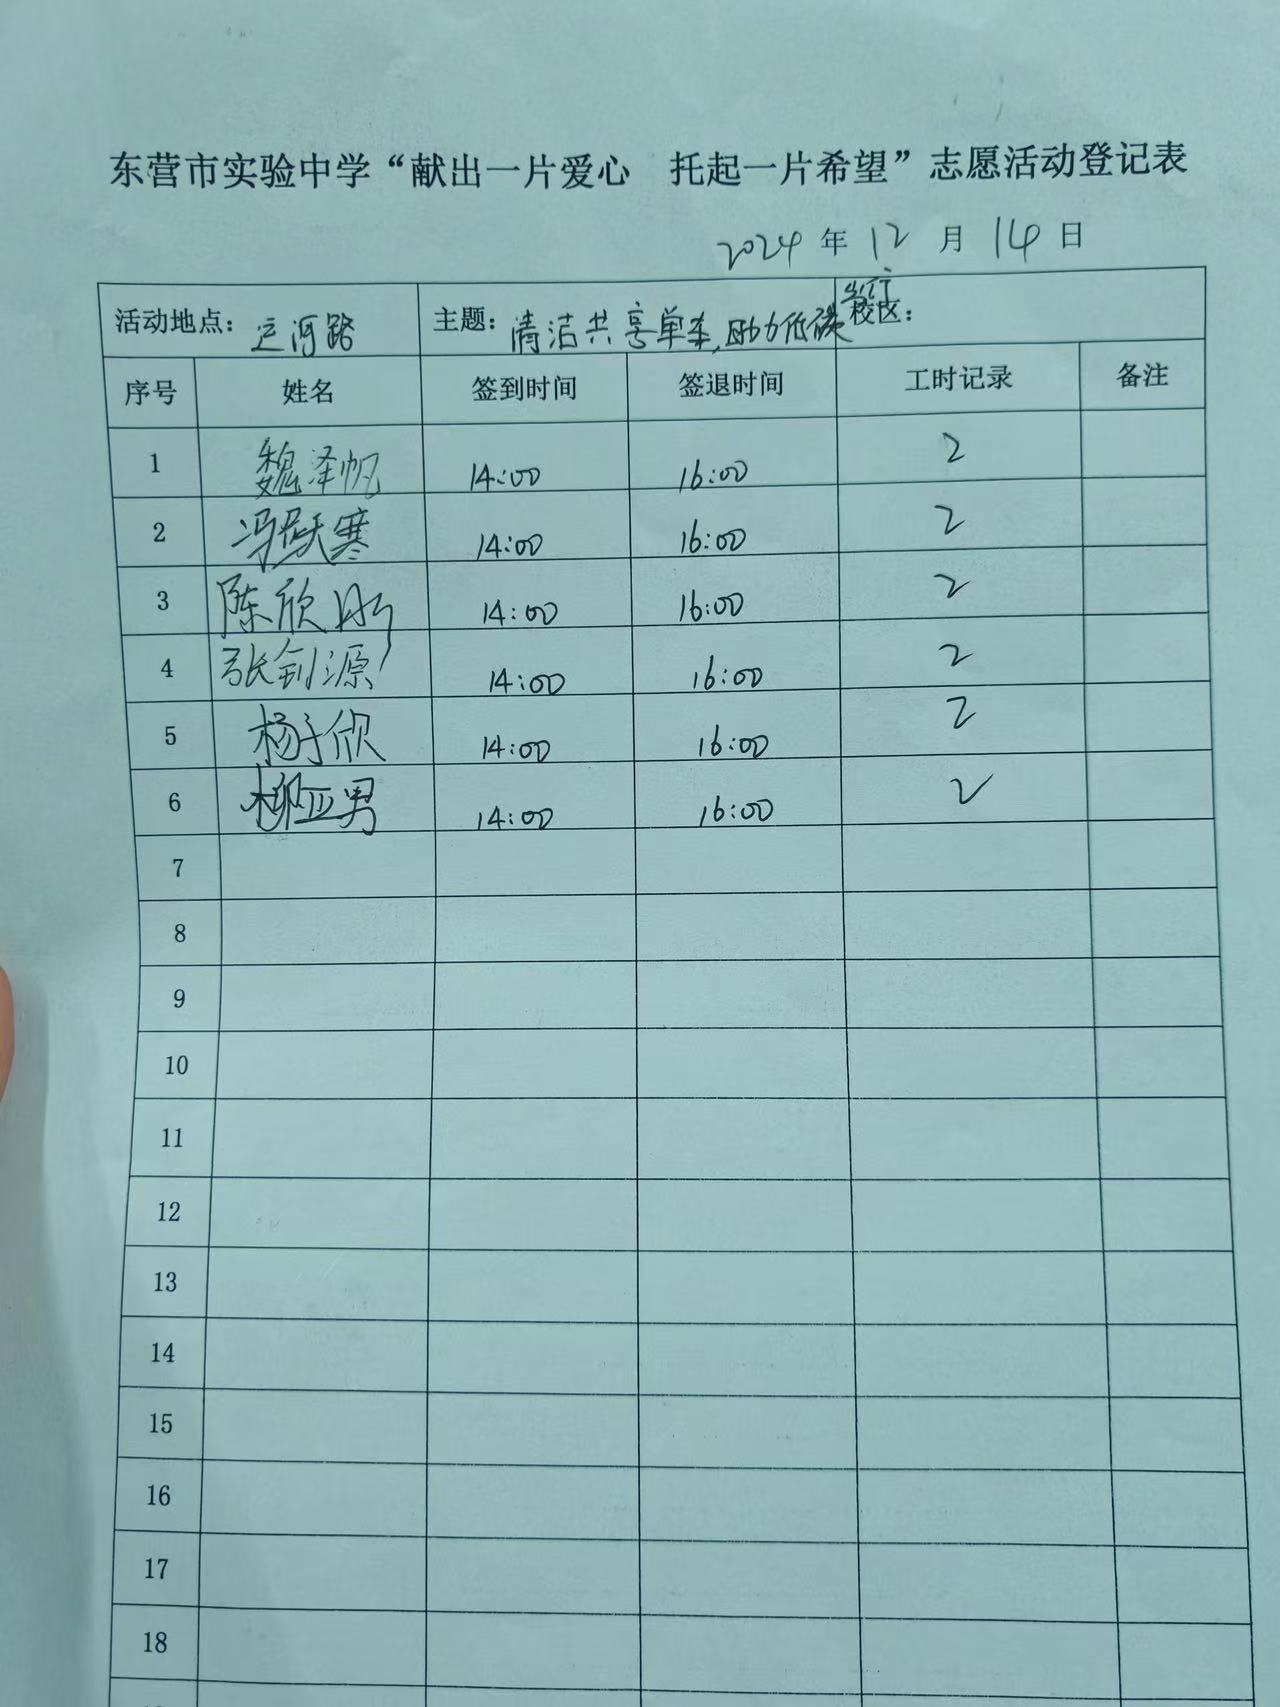 东营市实验中学“献出一片爱心　托起一片希望”志愿活动登记表
2024 年 12 月 14 日
活动地点：运河路 主题：清洁共享单车,助力低碳出行 校区：
序号 姓名 签到时间 签退时间 工时记录 备注
1 魏泽帆 14:00 16:00 2
2 冯跃寒 14:00 16:00 2
3 陈欣 14:00 16:00 2
4 张钊源 14:00 16:00 2
5 杨子欣 14:00 16:00 2
6 柳亚男 14:00 16:00 2
7
8
9
10
11
12
13
14
15
16
17
18